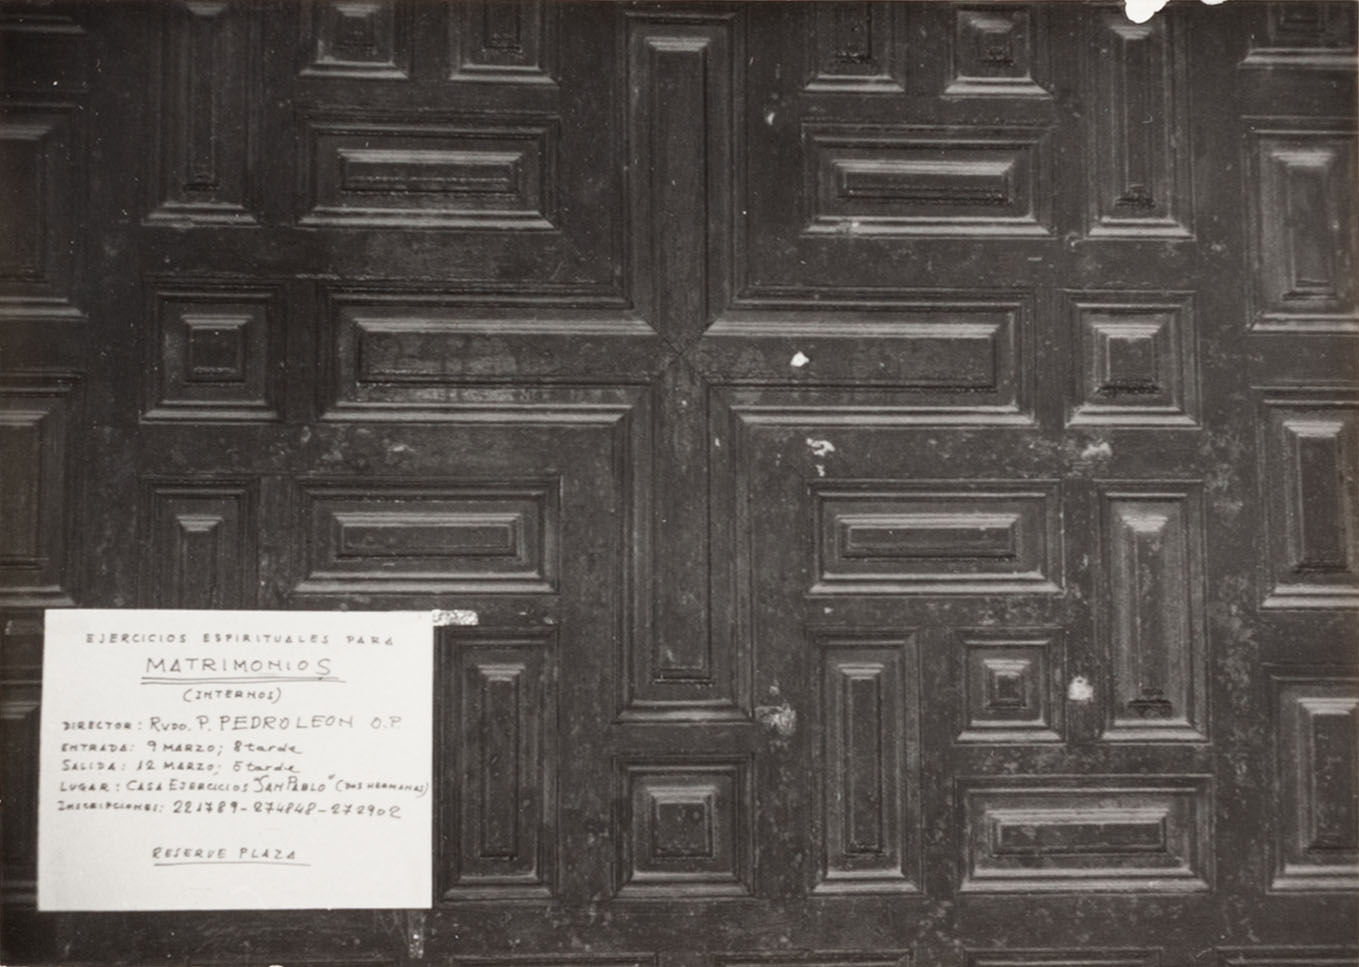 EJERCICIOS ESPIRITUALES PARA
MATRIMONIOS
(INTERNOS)
DIRECTOR: RVDO. P. PEDRO LEON O.P.
ENTRADA: 9 MARZO; 8 tarde
SALIDA: 12 MARZO; 5 tarde
LUGAR: CASA EJERCICIOS "SAN PABLO" (DOS HERMANAS)
INSCRIPCIONES: 221789-274848-272902
RESERVE PLAZA